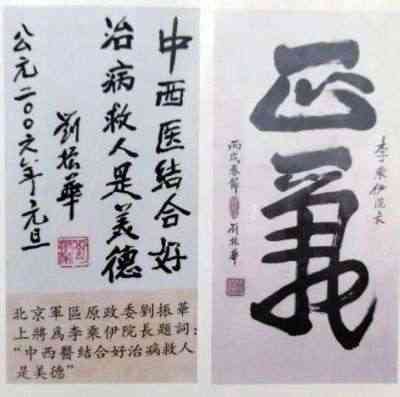 中西医结合好
治病救人是美德
劉振華
公元二〇〇六年元旦
北京軍區原政委劉振華
上將爲李乘伊院長題詞：
“中西醫結合好治病救人
是美德”
李乘伊院长
正義
丙戌春節
刘振華